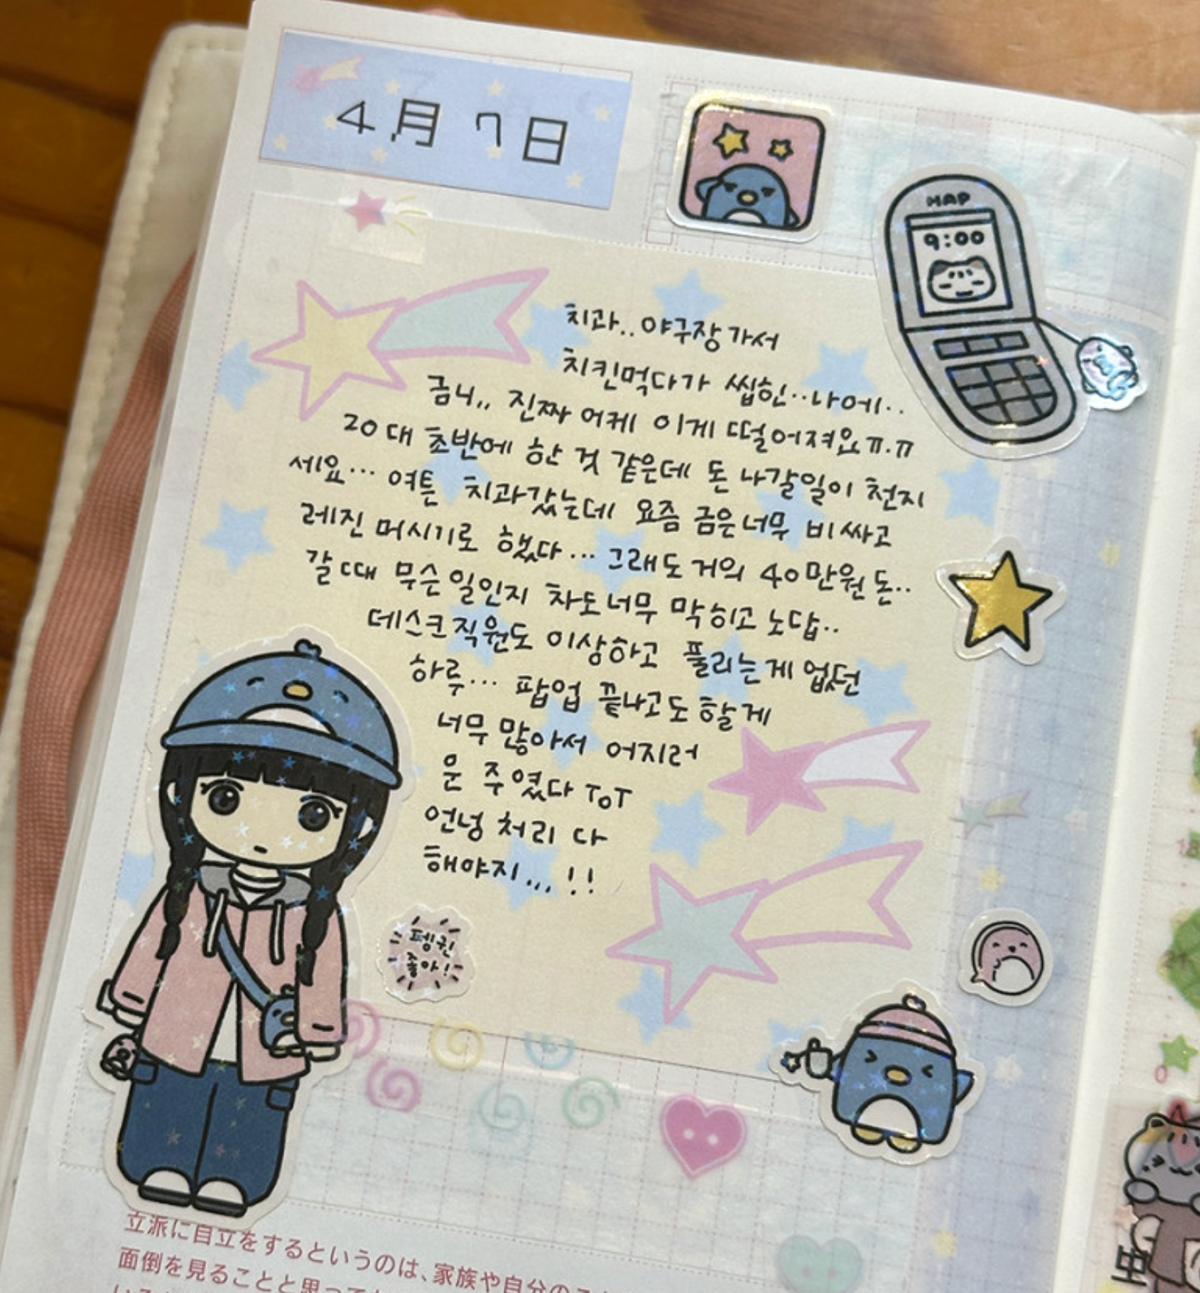 4月 7日
HAP
9:00
치과.. 야구장 가서
치킨먹다가 씹힌.. 나에..
금니,, 진짜 어케 이게 떨어져요ㅠ.ㅠ
20대 초반에 한 것 같은데 돈 나갈일이 천지
세요... 여튼 치과갔는데 요즘 금은 너무 비싸고
레진 머시기로 했다... 그래도 거의 40만원 돈..
갈 때 무슨 일인지 차도 너무 막히고 노답..
데스크 직원도 이상하고 풀리는게 없던
하루... 팝업 끝나고도 할게
너무 많아서 어지러
운 주였다 ToT
언넝 처리 다
해야지... !!
펭귄
좋아!
立派に自立をするというのは、家族や自分の
面倒を見ることと思って